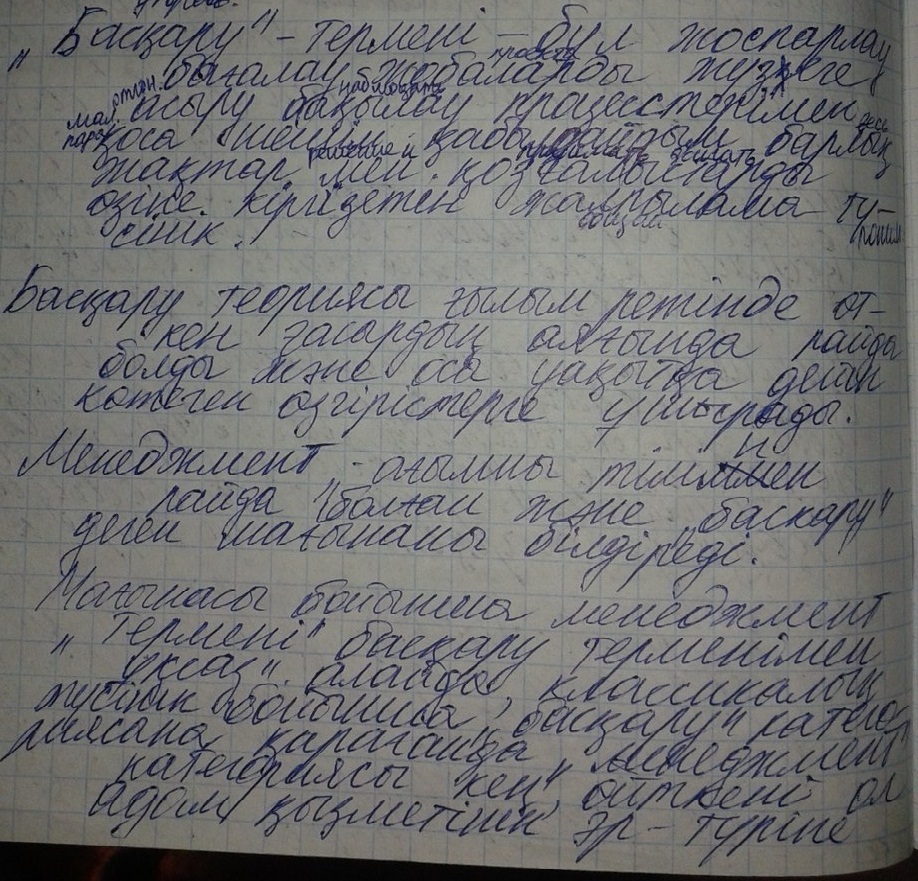 „Басқару" - термені - бұл жоспарлау
бағалау жобаларды жүзеге
асыру бақылау процесстерімен
қоса шешім қабылдайтын барлық
жақтар мен қозғалыстарды
өзіне кіргізетен жалпылама тү-
сінік.
решение
общий
Басқару теориясы ғылым ретінде өт-
кен ғасырдың аяғында пайда
болды және оса уақытқа дейін
көтеген өзгерістерге ұшырады.
Менеджмент ағылшы тілінен
пайда болған және „басқару"
деген мағынаны білдіреді.
Мағынасы бойынша менеджмент
„термені" басқару терменімен
ұқсас. алайда классикалық
түсінік бойынша, „басқару" катего
риясана қарағанда „менеджмент"
категориясы кең, өйткені ол
адам қызметінің әр-түріне